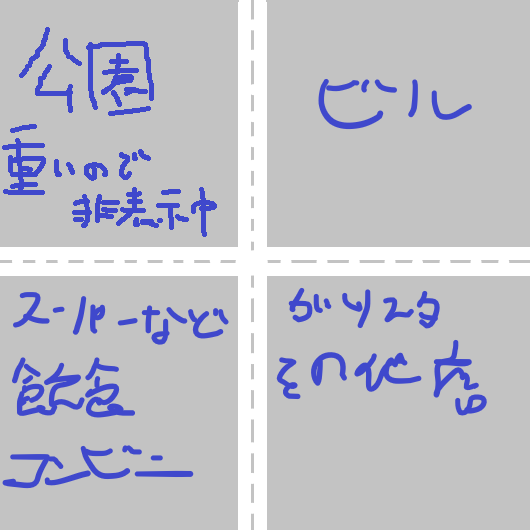 公園
重いので
非表示中
ビル
スーパーなど
飲食
コンビニ
ガソスタ
その他店